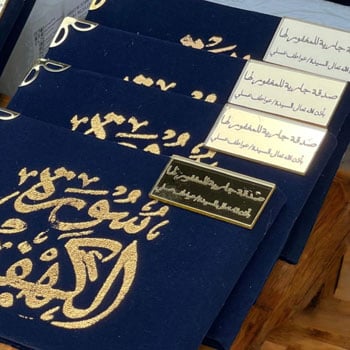 صدقة جارية للمغفور لها
بإذن الله تعالى السيدة/عواطف
صدقة جارية للمغفور لها
بإذن الله تعالى السيدة/عواطف
صدقة جارية للمغفور لها
بإذن الله تعالى السيدة/عواطف
صدقة جارية للمغفور لها
بإذن الله تعالى السيدة/عواطف
سورة
الكهف